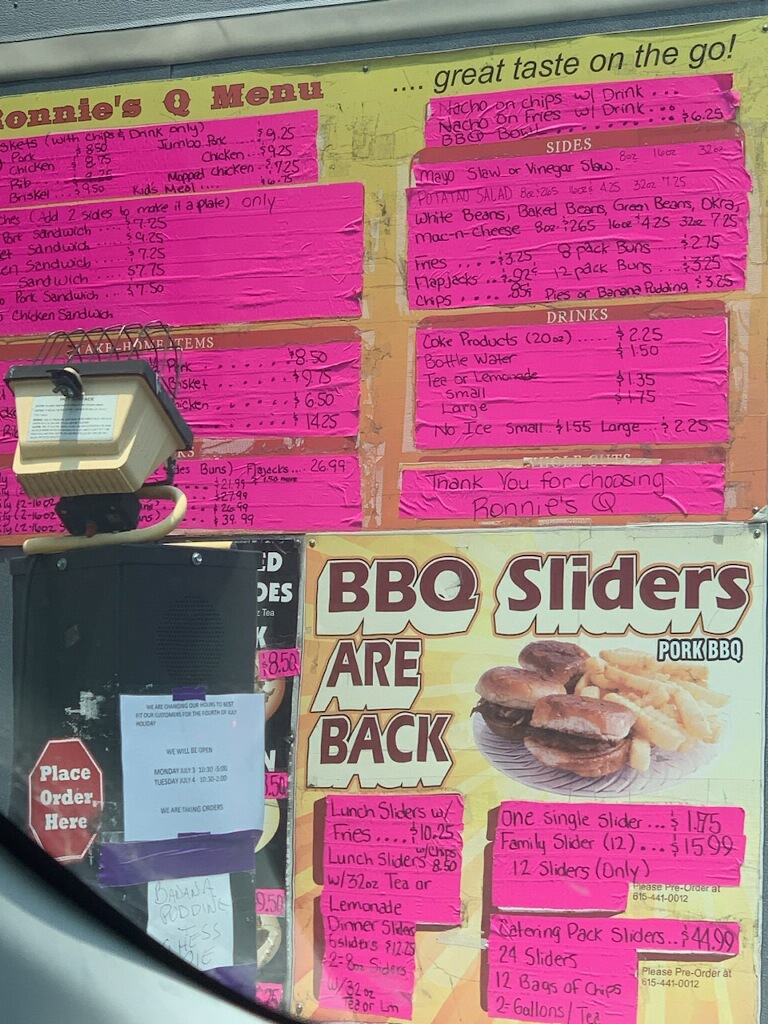 Ronnie's Q Menu
.... great taste on the go!
(with chips & Drink only)
Pork $8.50 Jumbo Pork $9.25
Chicken $8.75 Chicken $9.25
Rib Mopped chicken $7.25
Brisket $9.50 Kids Meal
(Add 2 sides to make it a plate) only
Sandwich $7.25
Sandwich $9.25
Sandwich $7.25
Sandwich $7.75
Pork Sandwich $7.50
Chicken Sandwich
TAKE-HOME ITEMS
Pork $8.50
$9.75
$6.50
$14.25
Buns) Flapjacks... 26.99
$21.99
$27.99
$26.99
$39.99
Nacho on chips w/ Drink ...
Nacho on Fries w/ Drink ...
BBQ Bowl $6.25
SIDES
Mayo Slaw or Vinegar Slaw 8oz 16oz 32oz
POTATAO SALAD 8oz $2.65 16oz $4.25 32oz 7.25
White Beans, Baked Beans, Green Beans, Okra,
Mac-n-Cheese 8oz $2.65 16oz $4.25 32oz 7.25
Fries $3.25 8 pack Buns $2.75
Flapjacks .92¢ 12 pack Buns $3.25
Chips .85¢ Pies or Banana Pudding $3.25
DRINKS
Coke Products (20oz) $2.25
Bottle Water $1.50
Tee or Lemonade
Small $1.35
Large $1.75
No Ice Small $1.55 Large $2.25
Thank You for Choosing
Ronnie's Q
$8.50
.50
9.50
Place
Order
Here
WE ARE CHANGING OUR HOURS TO BEST
FIT OUR CUSTOMERS FOR THE FOURTH OF JULY
HOLIDAY
WE WILL BE OPEN
MONDAY JULY 3 10:30-5:00
TUESDAY JULY 4 10:30-2:00
WE ARE TAKING ORDERS
BANANA
PUDDING
BBQ Sliders
ARE
BACK
PORK BBQ
Lunch Sliders w/
Fries.... $10.25
Lunch Sliders w/chips 8.50
w/32oz Tea or
Lemonade
Dinner Sliders
6 sliders $12.25
2-8oz Siders
w/32oz
Tea or Lm
One Single Slider... $1.75
Family Slider (12) .. $15.99
12 Sliders (Only)
Please Pre-Order at
615-441-0012
Catering Pack Sliders.. $44.99
24 Sliders
12 Bags of Chips
2-Gallons/Tea
Please Pre-Order at
615-441-0012